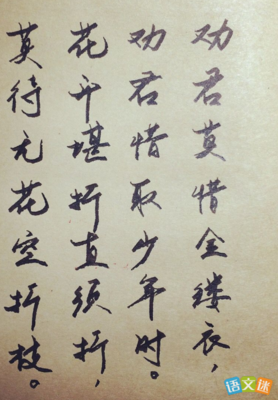 劝君莫惜金缕衣，
劝君惜取少年时。
花开堪折直须折，
莫待无花空折枝。
语文迷